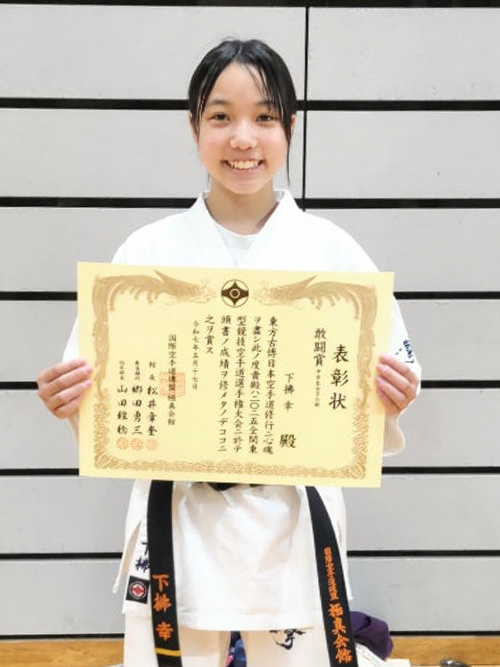 表彰状
敢闘賞
下拂 幸 殿
東方古傳日本空手道修行ニ心魂
ヲ盡シ此ノ度貴殿ハ二〇二五全関東
型競技空手道選手権大会ニ於テ
頭書ノ成績ヲ修メタノデココニ
之ヲ賞ス
令和七年五月十七日
国際空手道連盟極真会館
館長 松井章奎
郷田勇三
山田雅稔
下拂 幸
国際空手道連盟 極真会館